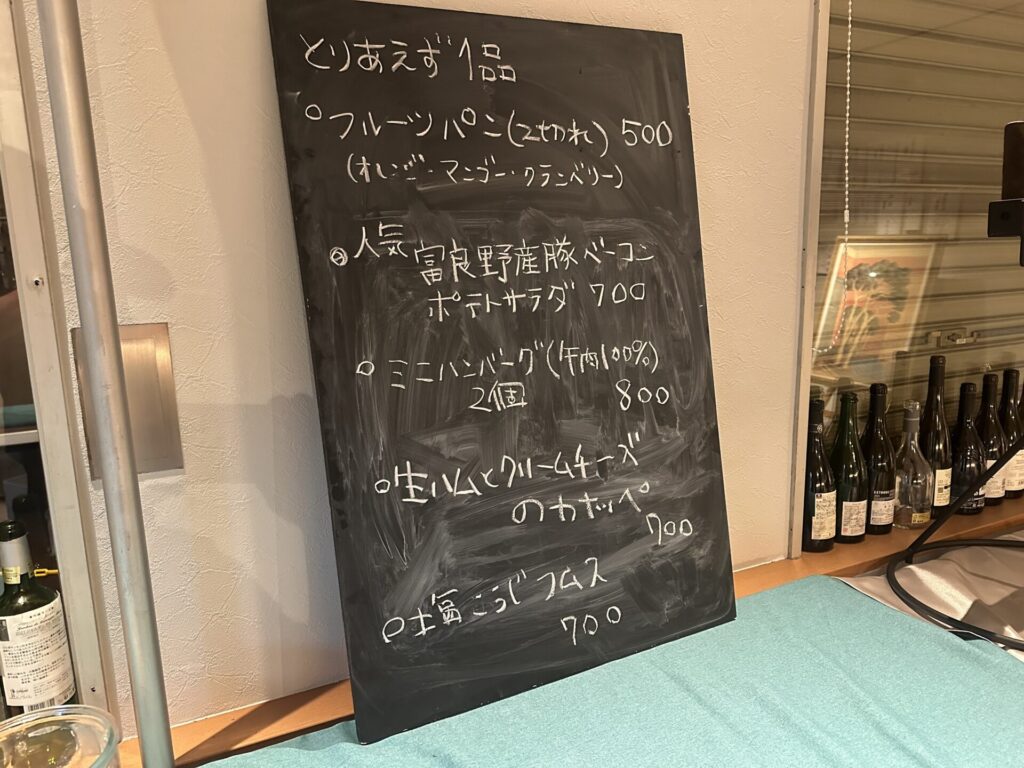 とりあえず1品
○フルーツパン(2切れ) 500
(オレンジ・マンゴー・クランベリー)
◎人気 富良野産豚ベーコン
ポテトサラダ 700
○ミニハンバーグ(牛肉100%)
2個 800
○生ハムとクリームチーズ
のカナッペ
700
○塩こうじフムス
700